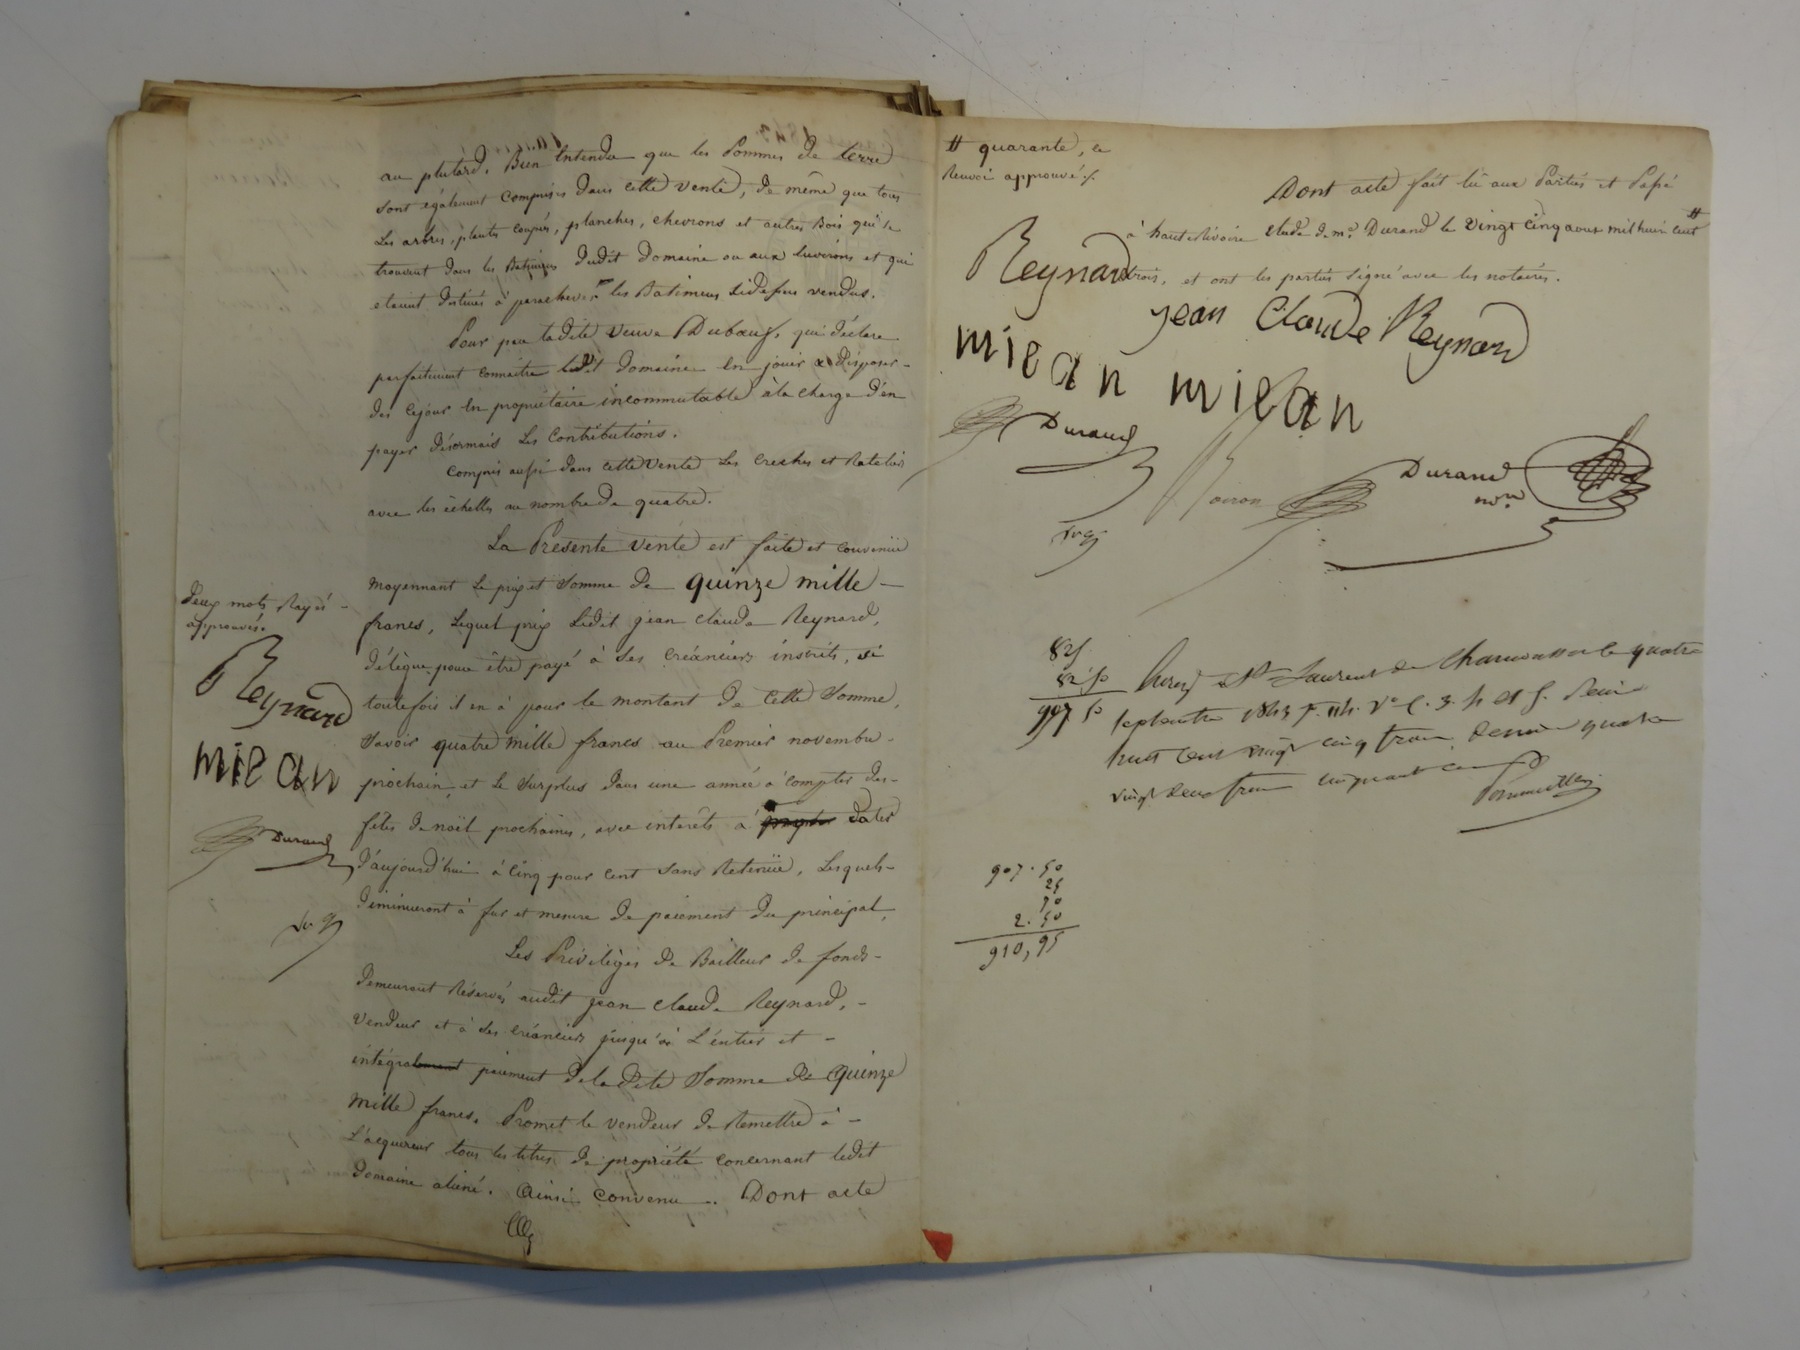 au plutard. Bien Entendu que les Pommes de terre
sont également Comprises Dans cette vente, de même que tous
Les arbres, plantes coupés, planches, chevrons et autres Bois qui se
trouvent dans les Batimens dudit Domaine ou aux Environs et qui
etaient destinés à parachever les Batimens Sidessus vendus.
Pour par ladite veuve Duboeuf, qui déclare
parfaitement connaitre ledit Domaine En jouir & Disposer
des cejour En propriétaire incommutable à la charge d'en
payer Désormais Les Contributions.
Compris aussi dans cette vente Les Creches et Rateliers
avec les échelles au nombre de quatre.
La Présente vente est faite et convenüe
moyennant Le prix et Somme De quinze mille
francs, Lequel prix Ledit jean Claude Reynard,
délègue pour être payé à Ses Créanciers inscrits, si
toutefois il en à pour le montant de Cette Somme,
Savoir quatre mille francs au Premier novembre
prochain, et Le Surplus Dans une année à compter des
fêtes de noël prochaines, avec intérêts à dater
D'aujourd'hui à Cinq pour Cent Sans Retenüe, Lesquels
Diminueront à fur et mesure De paiement du principal,
Les Privilèges De Bailleur de fonds
Demeurant Réservés audit jean Claude Reynard,
vendeur et à Ses Créanciers jusqu'à L'entier et
intégralement paiement De ladite Somme De Quinze
Mille francs. Promet le vendeur De Remettre à
L'acquereur tous les titres De propriété concernant ledit
Domaine aliéné. Ainsi Convenu. Dont acte
Deux mots Rayés
approuvés.
Reynard
miean
Durand
# quarante, ce
Renvoi approuvé
Dont acte fait lû aux Parties et Passé
à haute Rivoire Etude de me Durand le vingt Cinq aout mil huit cent #
trois, et ont les parties Signé avec les notaires.
Reynard
jean Claude Reynard
miean miean
Durand
Durand
nore
825
82 50
907 50
Enreg. à St Laurent de Chamousset le quatre
Septembre 1843 f. 114. vo C. 3. 4 et 5. Reçu
huit Cent vingt cinq francs, Décime quatre
vingt deux francs cinquante ces
907.50
25
70
2.50
910,95